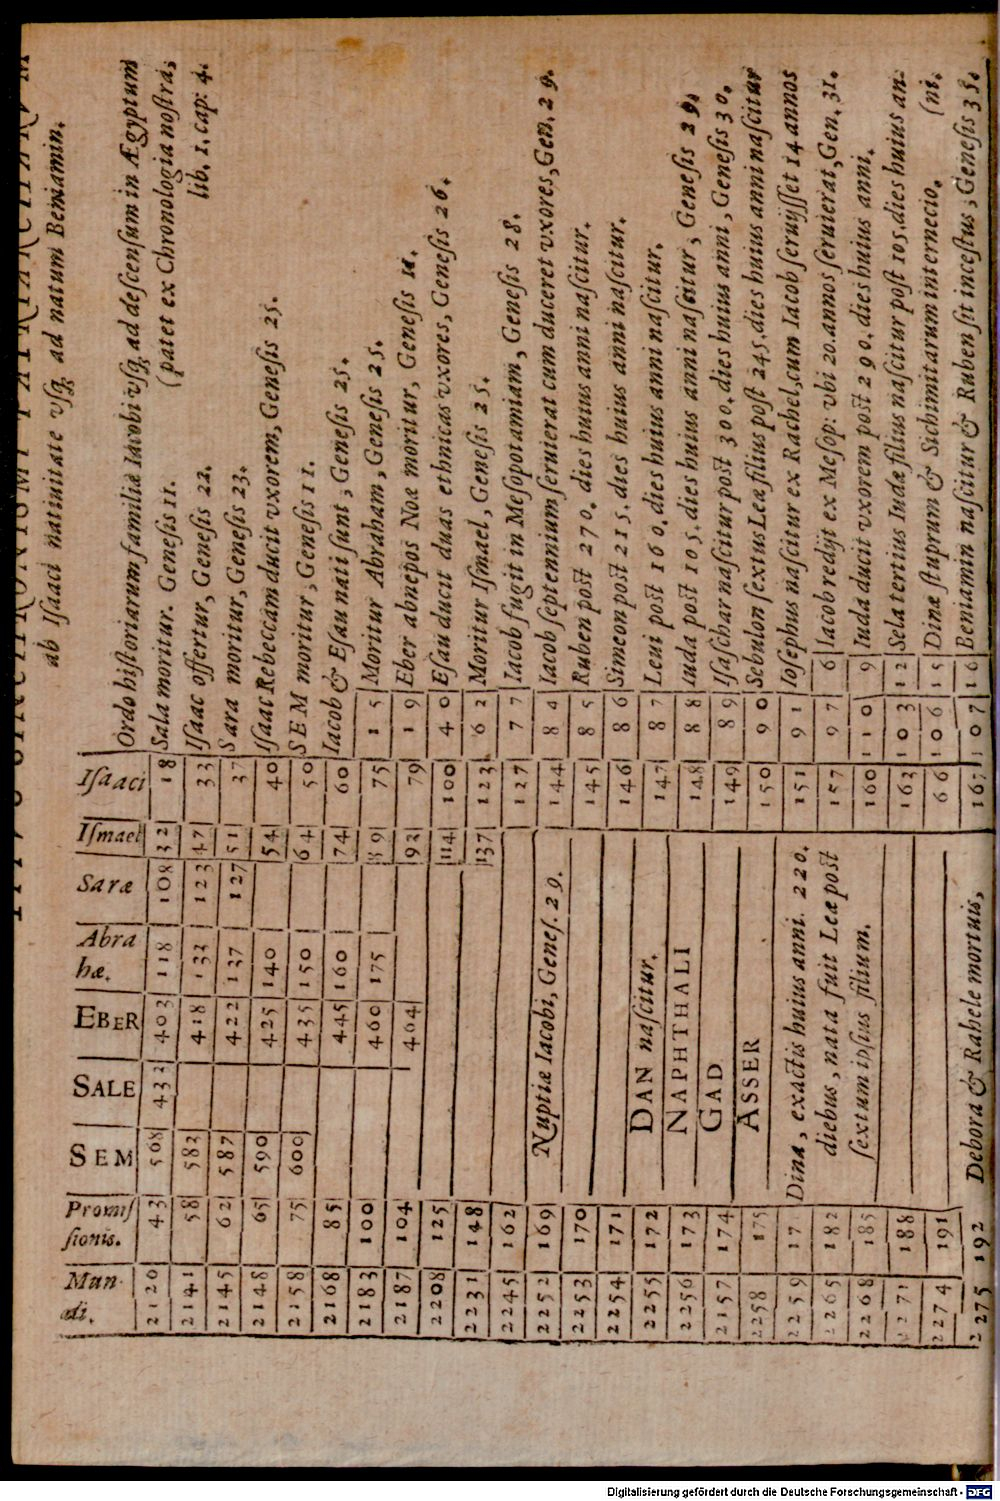 ab Iſaaci natiuitate vſq; ad natum Beniamin.
Mundi. Promiſſionis. SEM SALE EBER Abrahæ. Saræ Iſmael Iſaaci Ordo hiſtoriarum familiæ Iacobi vſq; ad deſcenſum in Ægyptum
(patet ex Chronologia noſtra,
lib. 1. cap: 4.
2120 43 568 432 403 118 108 32 18 Sala moritur. Geneſis 11.
2141 58 583 418 133 123 47 33 Iſaac offertur, Geneſis 22.
2145 62 587 422 137 127 51 37 Sara moritur, Geneſis 23.
2148 65 590 425 140 54 40 Iſaac Rebeccam ducit vxorem, Geneſis 25.
2158 75 600 435 150 64 50 SEM moritur, Geneſis 11.
2168 85 445 160 74 60 Iacob & Eſau nati ſunt, Geneſis 25.
2183 100 460 175 89 75 15 Moritur Abraham, Geneſis 25.
2187 104 464 93 79 19 Eber abnepos Noæ moritur, Geneſis 11.
2208 125 114 100 40 Eſau ducit duas ethnicas vxores, Geneſis 26.
2231 148 137 123 62 Moritur Iſmael, Geneſis 25.
2245 162 127 77 Iacob fugit in Meſopotamiam, Geneſis 28.
2252 169 Nuptiæ Iacobi, Geneſ. 29. 144 84 Iacob ſeptennium ſeruierat cum duceret vxores, Gen. 29.
2253 170 145 85 Ruben poſt 270. dies huius anni naſcitur.
2254 171 146 86 Simeon poſt 215. dies huius anni naſcitur.
2255 172 DAN naſcitur. 147 87 Leui poſt 160. dies huius anni naſcitur.
2256 173 NAPHTHALI 148 88 Iuda poſt 105. dies huius anni naſcitur, Geneſis 29.
2157 174 GAD 149 89 Iſaſchar naſcitur poſt 30. dies huius anni, Geneſis 30.
2258 175 ASSER 150 90 Sebulon ſextus Leæ filius poſt 245. dies huius anni naſcitur
2259 17 Dina, exactis huius anni. 220. 151 91 Ioſephus naſcitur ex Rachel, cum Iacob ſeruijſſet 14 annos
2265 182 diebus, nata fuit Leæ poſt 157 97 6 Iacob redijt ex Meſop: vbi 20. annos ſeruierat, Gen. 31.
2268 185 ſextum ipſius filium. 160 110 9 Iuda ducit vxorem poſt 290. dies huius anni.
2271 188 163 103 12 Sela tertius Iudæ filius naſcitur poſt 105. dies huius an-
2274 191 66 106 15 Dinæ ſtuprum & Sichimitarum internecio. (ni.
2275 192 Debora & Rahele mortuis, 167 107 16 Beniamin naſcitur & Ruben fit inceſtus, Geneſis 35.
Digitalisierung gefördert durch die Deutsche Forschungsgemeinschaft - DFG